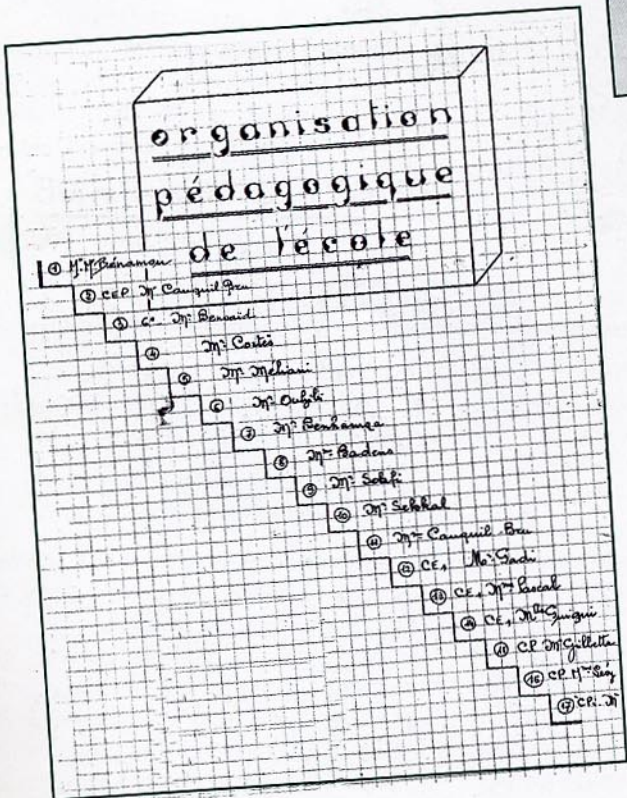 organisation
pédagogique
de l'école
① Mr Mr Bénamou
② CEP Mr Cauquil Bru
③ 6e Mr Bensaïdi
④ Mr Cortès
⑤ Mr Méliani
⑥ Mr
⑦ Mr Benhamza
⑧ Mme Badens
⑨ Mr
⑩ Mr Sekkal
⑪ Mme Cauquil-Bru
⑫ CE1 Mr Gadi
⑬ CE1 Mme Pascal
⑭ CE1 Mlle Guigui
⑮ CP Mr Gillette
⑯ CP Mme
⑰ CPi Mr